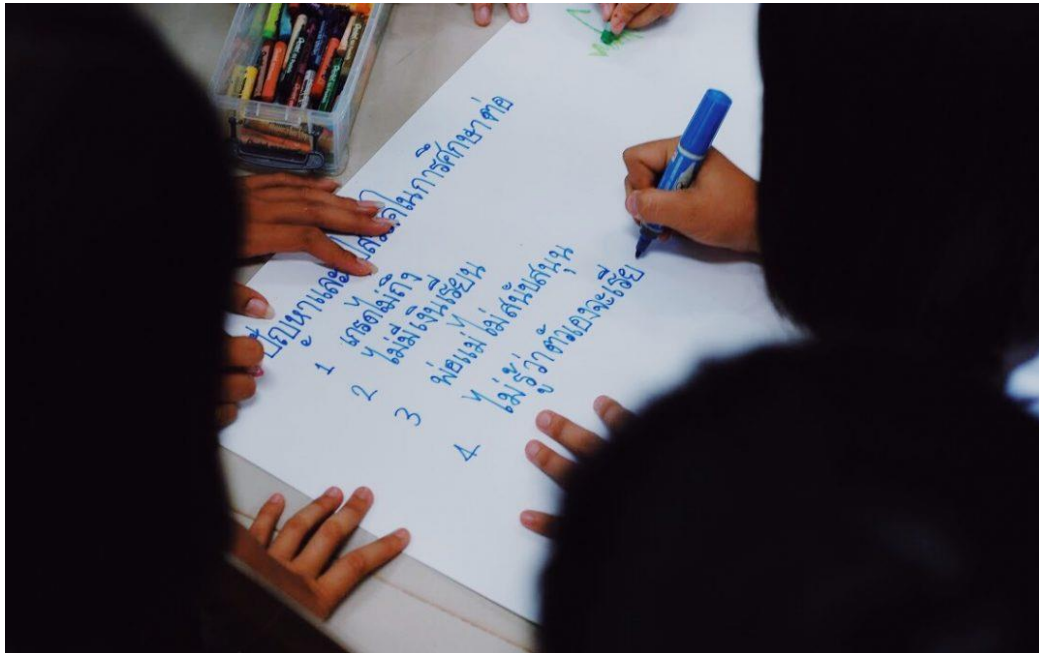 ปัญหาและอุปสรรคในการศึกษาต่อ
1 เกรดไม่ถึง
2 ไม่มีเงินเรียน
3 พ่อแม่ไม่สนับสนุน
4 ไม่รู้ว่าตัวเองจะเรีย